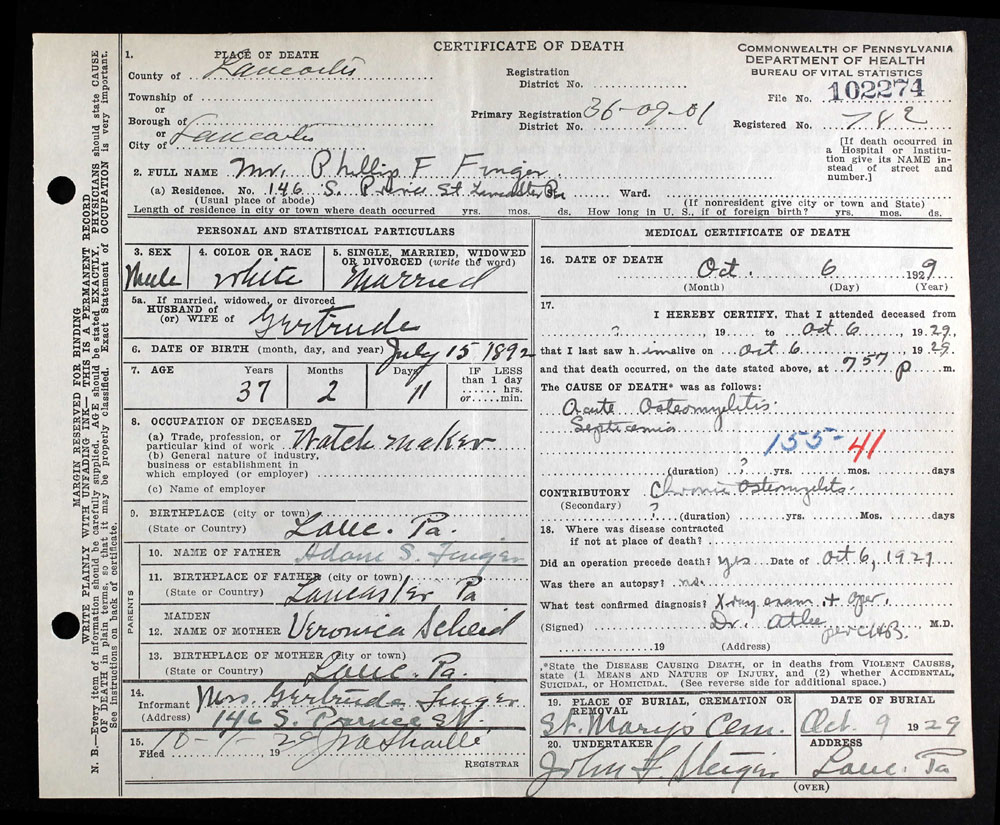 CERTIFICATE OF DEATH
COMMONWEALTH OF PENNSYLVANIA
DEPARTMENT OF HEALTH
BUREAU OF VITAL STATISTICS
File No. 102274
Registered No. 782
[If death occurred in a Hospital or Institution give its NAME instead of street and number.]
1. PLACE OF DEATH
County of Lancaster
Township of
or
Borough of
or
City of Lancaster
Registration District No.
Primary Registration District No. 36-09-01
2. FULL NAME Mr. Phillip F Finger
(a) Residence. No. 146 S. Prince St. Lancaster Pa Ward.
(Usual place of abode) (If nonresident give city or town and State)
Length of residence in city or town where death occurred yrs. mos. ds. How long in U. S., if of foreign birth? yrs. mos. ds.
MARGIN RESERVED FOR BINDING
WRITE PLAINLY WITH UNFADING INK—THIS IS A PERMANENT RECORD
N. B.—Every item of information should be carefully supplied. AGE should be stated EXACTLY. PHYSICIANS should state CAUSE
OF DEATH in plain terms, so that it may be properly classified. Exact Statement of OCCUPATION is very important.
See instructions on back of certificate.
PERSONAL AND STATISTICAL PARTICULARS
3. SEX
Male
4. COLOR OR RACE
White
5. SINGLE, MARRIED, WIDOWED OR DIVORCED (write the word)
Married
5a. If married, widowed, or divorced
HUSBAND of
(or) WIFE of Gertrude
6. DATE OF BIRTH (month, day, and year) July 15 1892
7. AGE Years Months Days IF LESS than 1 day
37 2 11 hrs. or min.
8. OCCUPATION OF DECEASED
(a) Trade, profession, or particular kind of work Watch maker
(b) General nature of industry, business or establishment in which employed (or employer)
(c) Name of employer
9. BIRTHPLACE (city or town)
(State or Country) Lanc. Pa.
PARENTS
10. NAME OF FATHER Adam S. Finger
11. BIRTHPLACE OF FATHER (city or town)
(State or Country) Lancaster Pa
MAIDEN
12. NAME OF MOTHER Veronica Scheid
13. BIRTHPLACE OF MOTHER (city or town)
(State or Country) Lanc. Pa.
14.
Informant Mrs Gertrude Finger
(Address) 146 S. Prince St.
15.
Filed 19
REGISTRAR
MEDICAL CERTIFICATE OF DEATH
16. DATE OF DEATH Oct. 6 1929
(Month) (Day) (Year)
17.
I HEREBY CERTIFY, That I attended deceased from
?, 19 to Oct 6, 1929,
that I last saw him alive on Oct 6 1929
and that death occurred, on the date stated above, at 757 P m.
The CAUSE OF DEATH* was as follows:
Acute Osteomyelitis
Septicemia
155-41
(duration) ? yrs. mos. days
CONTRIBUTORY Chronic Osteomyelitis.
(Secondary)
? (duration) yrs. Mos. days
18. Where was disease contracted
if not at place of death?
Did an operation precede death? yes Date of Oct 6, 1929
Was there an autopsy? no.
What test confirmed diagnosis? X-ray exam. + oper.
(Signed) Dr. Atlee per CHB. M.D.
19 (Address)
*State the DISEASE CAUSING DEATH, or in deaths from VIOLENT CAUSES, state (1 MEANS AND NATURE OF INJURY, and (2) whether ACCIDENTAL, SUICIDAL, or HOMICIDAL. (See reverse side for additional space.)
19. PLACE OF BURIAL, CREMATION OR REMOVAL
St. Mary's Cem.
DATE OF BURIAL
Oct. 9 1929
20. UNDERTAKER
John F.
ADDRESS
Lanc. Pa
(OVER)